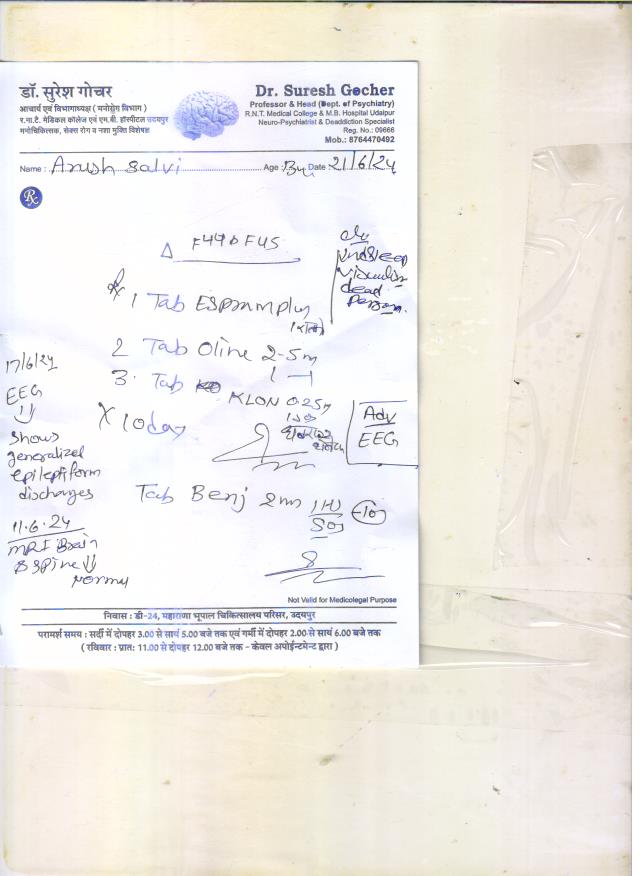 डॉ. सुरेश गोचर
आचार्य एवं विभागाध्यक्ष ( मनोरोग विभाग )
र.ना.टै. मेडिकल कॉलेज एवं एम.बी. हॉस्पीटल उदयपुर
मनोचिकित्सक, सेक्स रोग व नशा मुक्ति विशेषज्ञ
Dr. Suresh Gocher
Professor & Head (Dept. of Psychiatry)
R.N.T. Medical College & M.B. Hospital Udaipur
Neuro-Psychiatrist & Deaddiction Specialist
Reg. No.: 09666
Mob.: 8764470492
Name : Arush Salvi Age : Date 21/6/24
Rx
F44 F45
dead
person
1 Tab
2 Tab Oline 2-5m
3. Tab KLON 0.25m
X 10 day
Adv
EEG
17/6/24
EEG
shows
generalized
epileptiform
discharges
Tab Benj 2m
SOS
11.6.24
MRI Brain
& spine
Not Valid for Medicolegal Purpose
निवास : डी-24, महाराणा भूपाल चिकित्सालय परिसर, उदयपुर
परामर्श समय : सर्दी में दोपहर 3.00 से सायं 5.00 बजे तक एवं गर्मी में दोपहर 2.00 से सायं 6.00 बजे तक
( रविवार : प्रातः 11.00 से दोपहर 12.00 बजे तक - केवल अपोईन्टमेन्ट द्वारा )